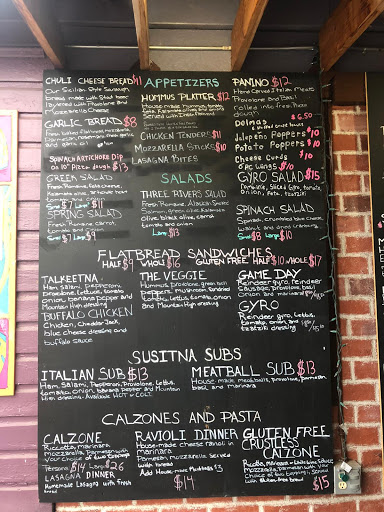 CHULI CHEESE BREAD $11
Our Sicilian Style Sausage,
bread made with Stout beer
layered with Provolone and
Mozzarella Cheese
GARLIC BREAD $8
SPINACH ARTICHOKE DIP
on 10" Pizza dough $13
GREEK SALAD
Fresh Romaine, feta cheese,
Kalamata olive,
Small $7 Large $11
SPRING SALAD
Fresh Romaine, Carrot,
tomato and onion
Small $7 Large $9
APPETIZERS
HUMMUS PLATTER $12
House made Hummus, tomato,
CHICKEN TENDERS $11
MOZZARELLA STICKS $10
LASAGNA BITES
SALADS
THREE RIVERS SALAD
Fresh Romaine, Alaska Smoked
Salmon, green olive, Kalamata
Olive, black olive, carrot
tomato and onion
Large $13
PANINO $12
Hand Carved Italian Meats
Provolone and Basil
rolled into fresh Pizza
dough
Dolmas $6.50
Jalapeño Poppers $10
Potato Poppers $10
Cheese Curds $10
6 PC WINGS $10
GYRO SALAD $15
Romaine, Sliced Gyro, tomato,
Onion, Feta, tzatziki
SPINACH SALAD
Spinach, Crumbled blue cheese,
walnut and dried cranberry
Small $8 Large $10
FLATBREAD SANDWICHES
HALF $9 WHOLE $16 GLUTEN FREE HALF $10 WHOLE $17
TALKEETNA
Ham, Salami, Pepperoni,
Provolone, Lettuce, tomato
onion, banana pepper and
Mountain High dressing
BUFFALO CHICKEN
Chicken, Cheddar Jack,
blue cheese dressing and
buffalo sauce
THE VEGGIE
Hummus, provolone, green bell
peppers, mushroom, tomato,
and Mountain High dressing
GAME DAY
Reindeer gyro, reindeer
Sausage, provolone, basil
Onion and marinara
GYRO
Reindeer gyro, lettuce
tomato, onion, and
tzatziki dressing
SUSITNA SUBS
ITALIAN SUB $13
Ham, Salami, Pepperoni, Provolone, Lettuce,
tomato, onion, banana Pepper and Mountain
High dressing - Available HOT or COLD
MEATBALL SUB $13
House made meatballs, provolone, parmesan,
basil, and marinara
CALZONES AND PASTA
CALZONE
Ricotta, marinara
Mozzarella, Parmesan with
Your Choice of two toppings
Personal $14 Large $26
LASAGNA DINNER
Homemade Lasagna with Fresh
bread
RAVIOLI DINNER
House-made cheese ravioli in
marinara
Parmesan, mozzarella Served
with bread
Add House-made Meatballs $3
$14
GLUTEN FREE
CRUSTLESS
CALZONE
Ricotta, Marinara
Mozzarella, Parmesan with Your
Choice of two topping. Served
with Gluten free bread
$15